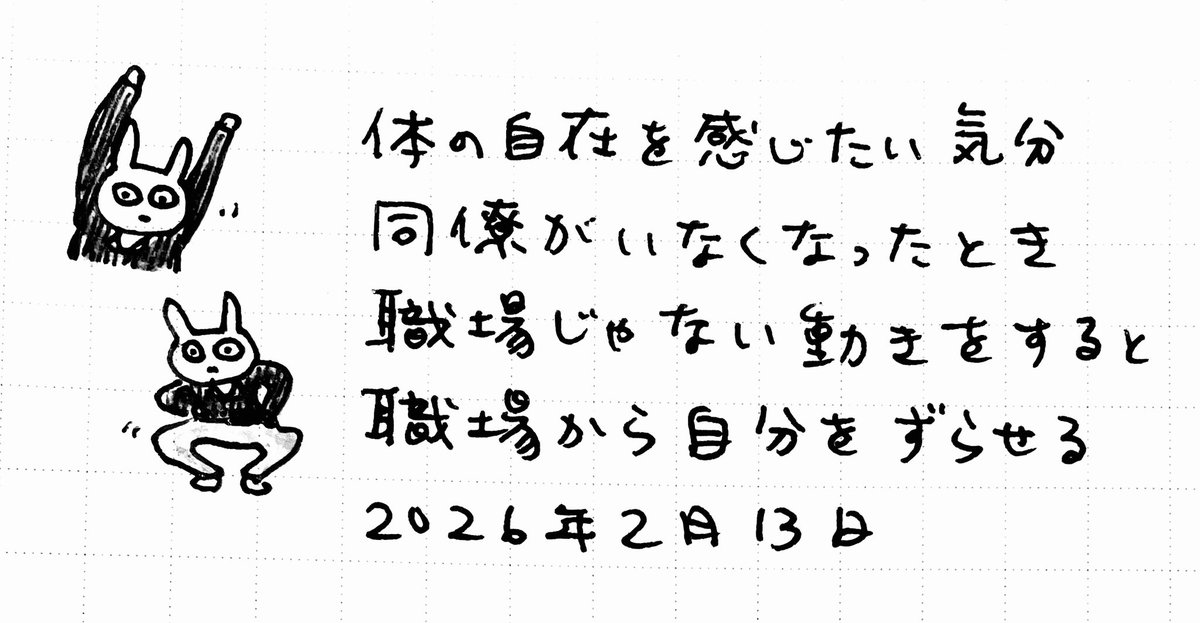 体の自在を感じたい気分
同僚がいなくなったとき
職場じゃない動きをすると
職場から自分をずらせる
2026年2月13日